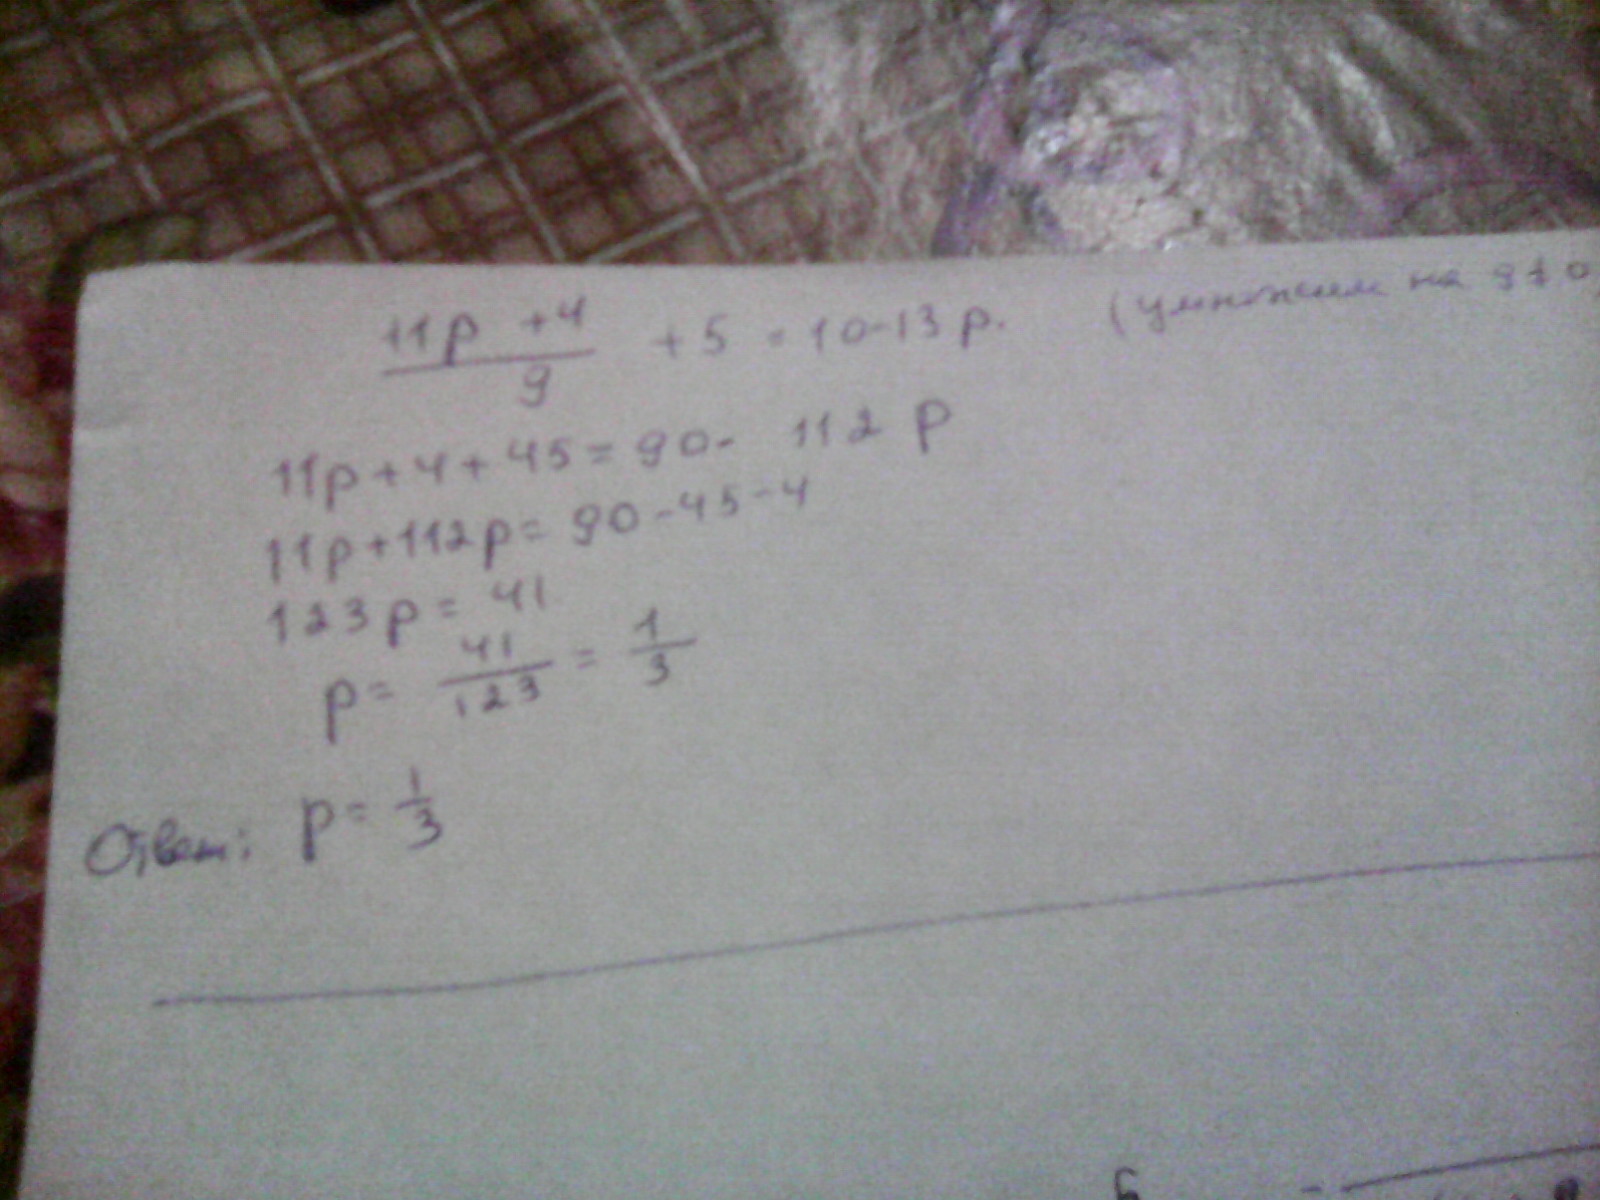 11p + 4 / 9 + 5 = 10 - 13p. (умножим на 9 ≠ 0)
11p + 4 + 45 = 90 - 112p
11p + 112p = 90 - 45 - 4
123p = 41
p = 41/123 = 1/3
Ответ: p = 1/3